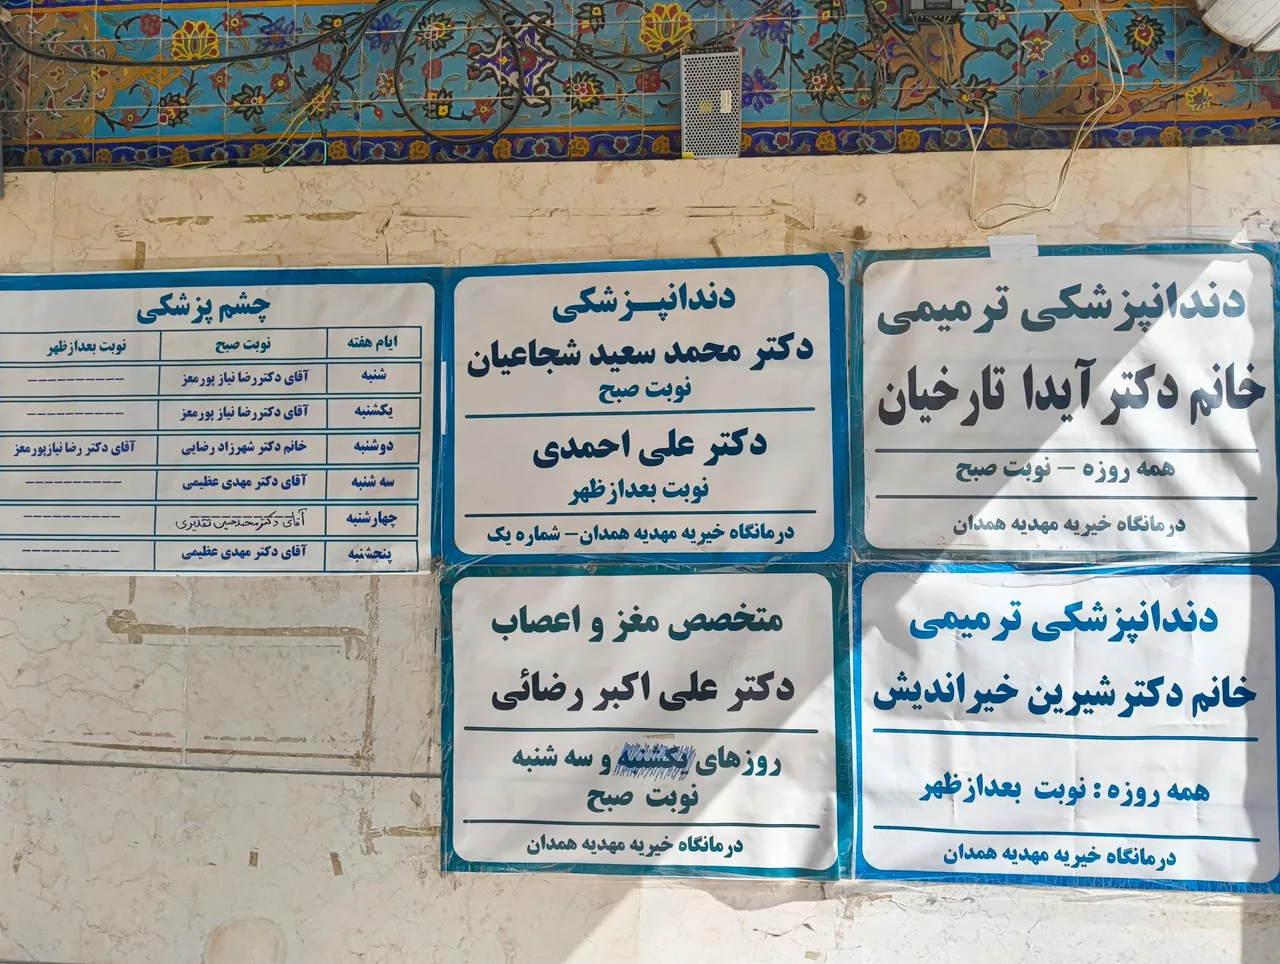 دندانپزشکی ترمیمی
خانم دکتر آیدا تارخیان
همه روزه – نوبت صبح
درمانگاه خیریه مهدیه همدان
دندانپزشکی
دکتر محمد سعید شجاعیان
نوبت صبح
دکتر علی احمدی
نوبت بعدازظهر
درمانگاه خیریه مهدیه همدان– شماره یک
چشم پزشکی
ایام هفته نوبت صبح نوبت بعدازظهر
شنبه آقای دکتررضا نیاز پورمعز ----------
یکشنبه آقای دکتررضا نیاز پورمعز ----------
دوشنبه خانم دکتر شهرزاد رضایی آقای دکتر رضا نیازپورمعز
سه شنبه آقای دکتر مهدی عظیمی ----------
چهارشنبه آقای دکتر محمدحسین تقدیری ----------
پنجشنبه آقای دکتر مهدی عظیمی ----------
دندانپزشکی ترمیمی
خانم دکتر شیرین خیراندیش
همه روزه : نوبت بعدازظهر
درمانگاه خیریه مهدیه همدان
متخصص مغز و اعصاب
دکتر علی اکبر رضائی
روزهای یکشنبه و سه شنبه
نوبت صبح
درمانگاه خیریه مهدیه همدان